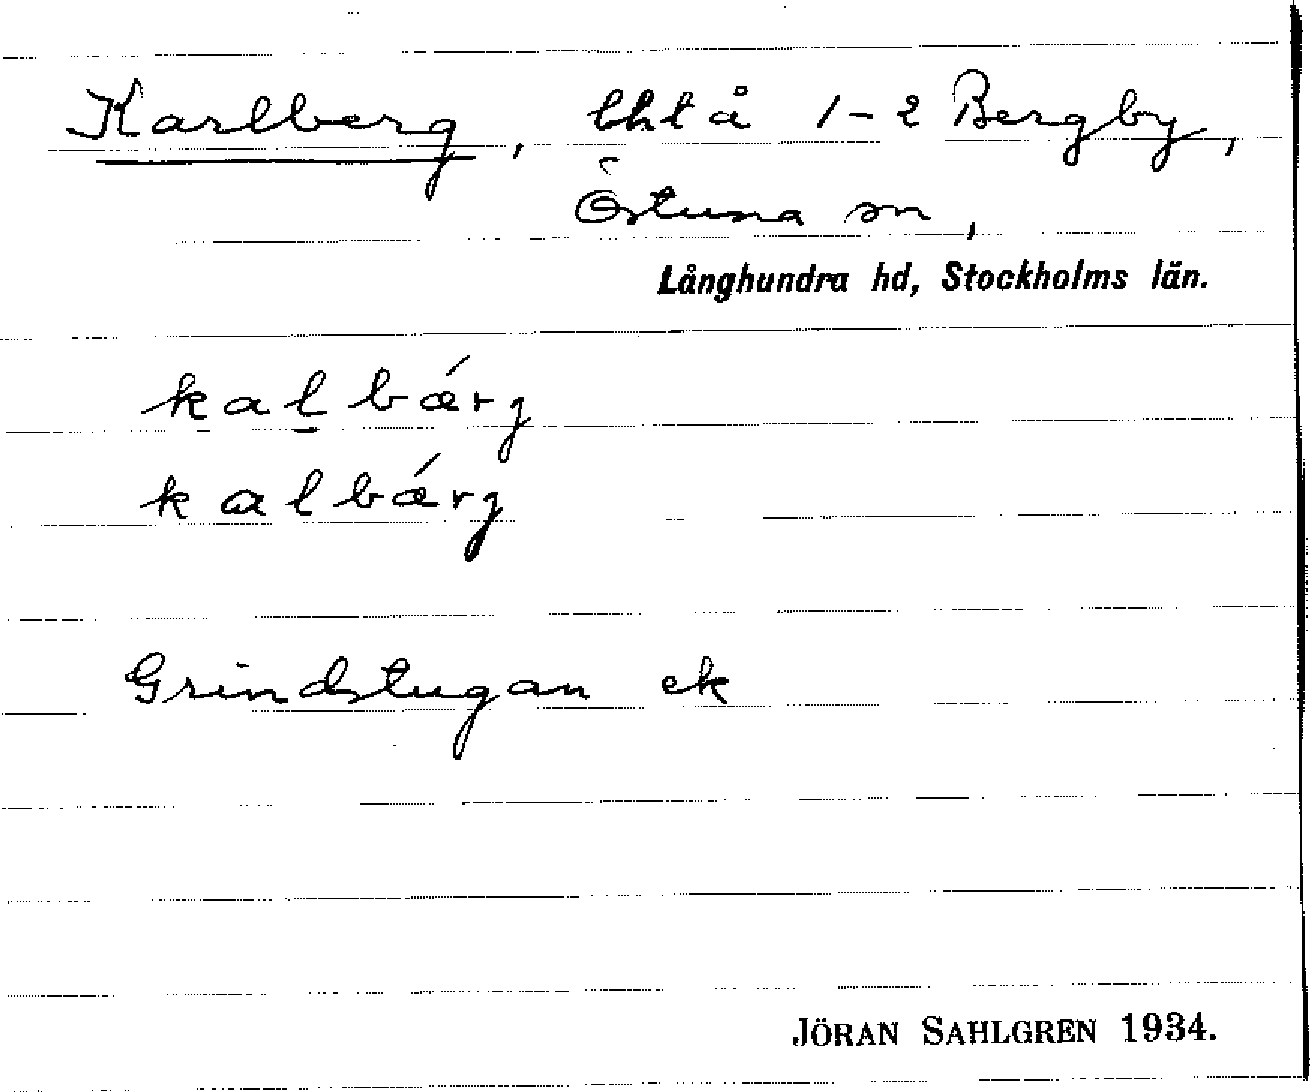 Karlberg, lht å 1-2 Bergby,
Östuna sn,
Långhundra hd, Stockholms län.
kal̲bǽrg
kalbǽrg
Grindstugan ek
JÖRAN SAHLGREN 1934.